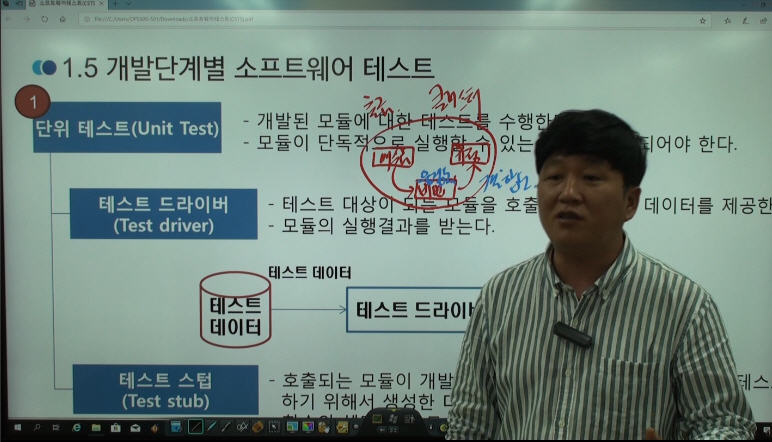 소프트웨어테스트(CSTS)
file:///C:/Users/OPS680-501/Downloads/소프트웨어테스트(CSTS).pdf
1.5 개발단계별 소프트웨어 테스트
1
단위 테스트(Unit Test)
- 개발된 모듈에 대한 테스트를 수행한
- 모듈이 단독적으로 실행할 수 있는
되어야 한다.
테스트 드라이버
(Test driver)
- 테스트 대상이 되는 모듈을 호출
데이터를 제공한
- 모듈의 실행결과를 받는다.
테스트 데이터
테스트
데이터
테스트 드라이버
테스트 스텁
(Test stub)
- 호출되는 모듈이 개발
테스
하기 위해서 생성한 더